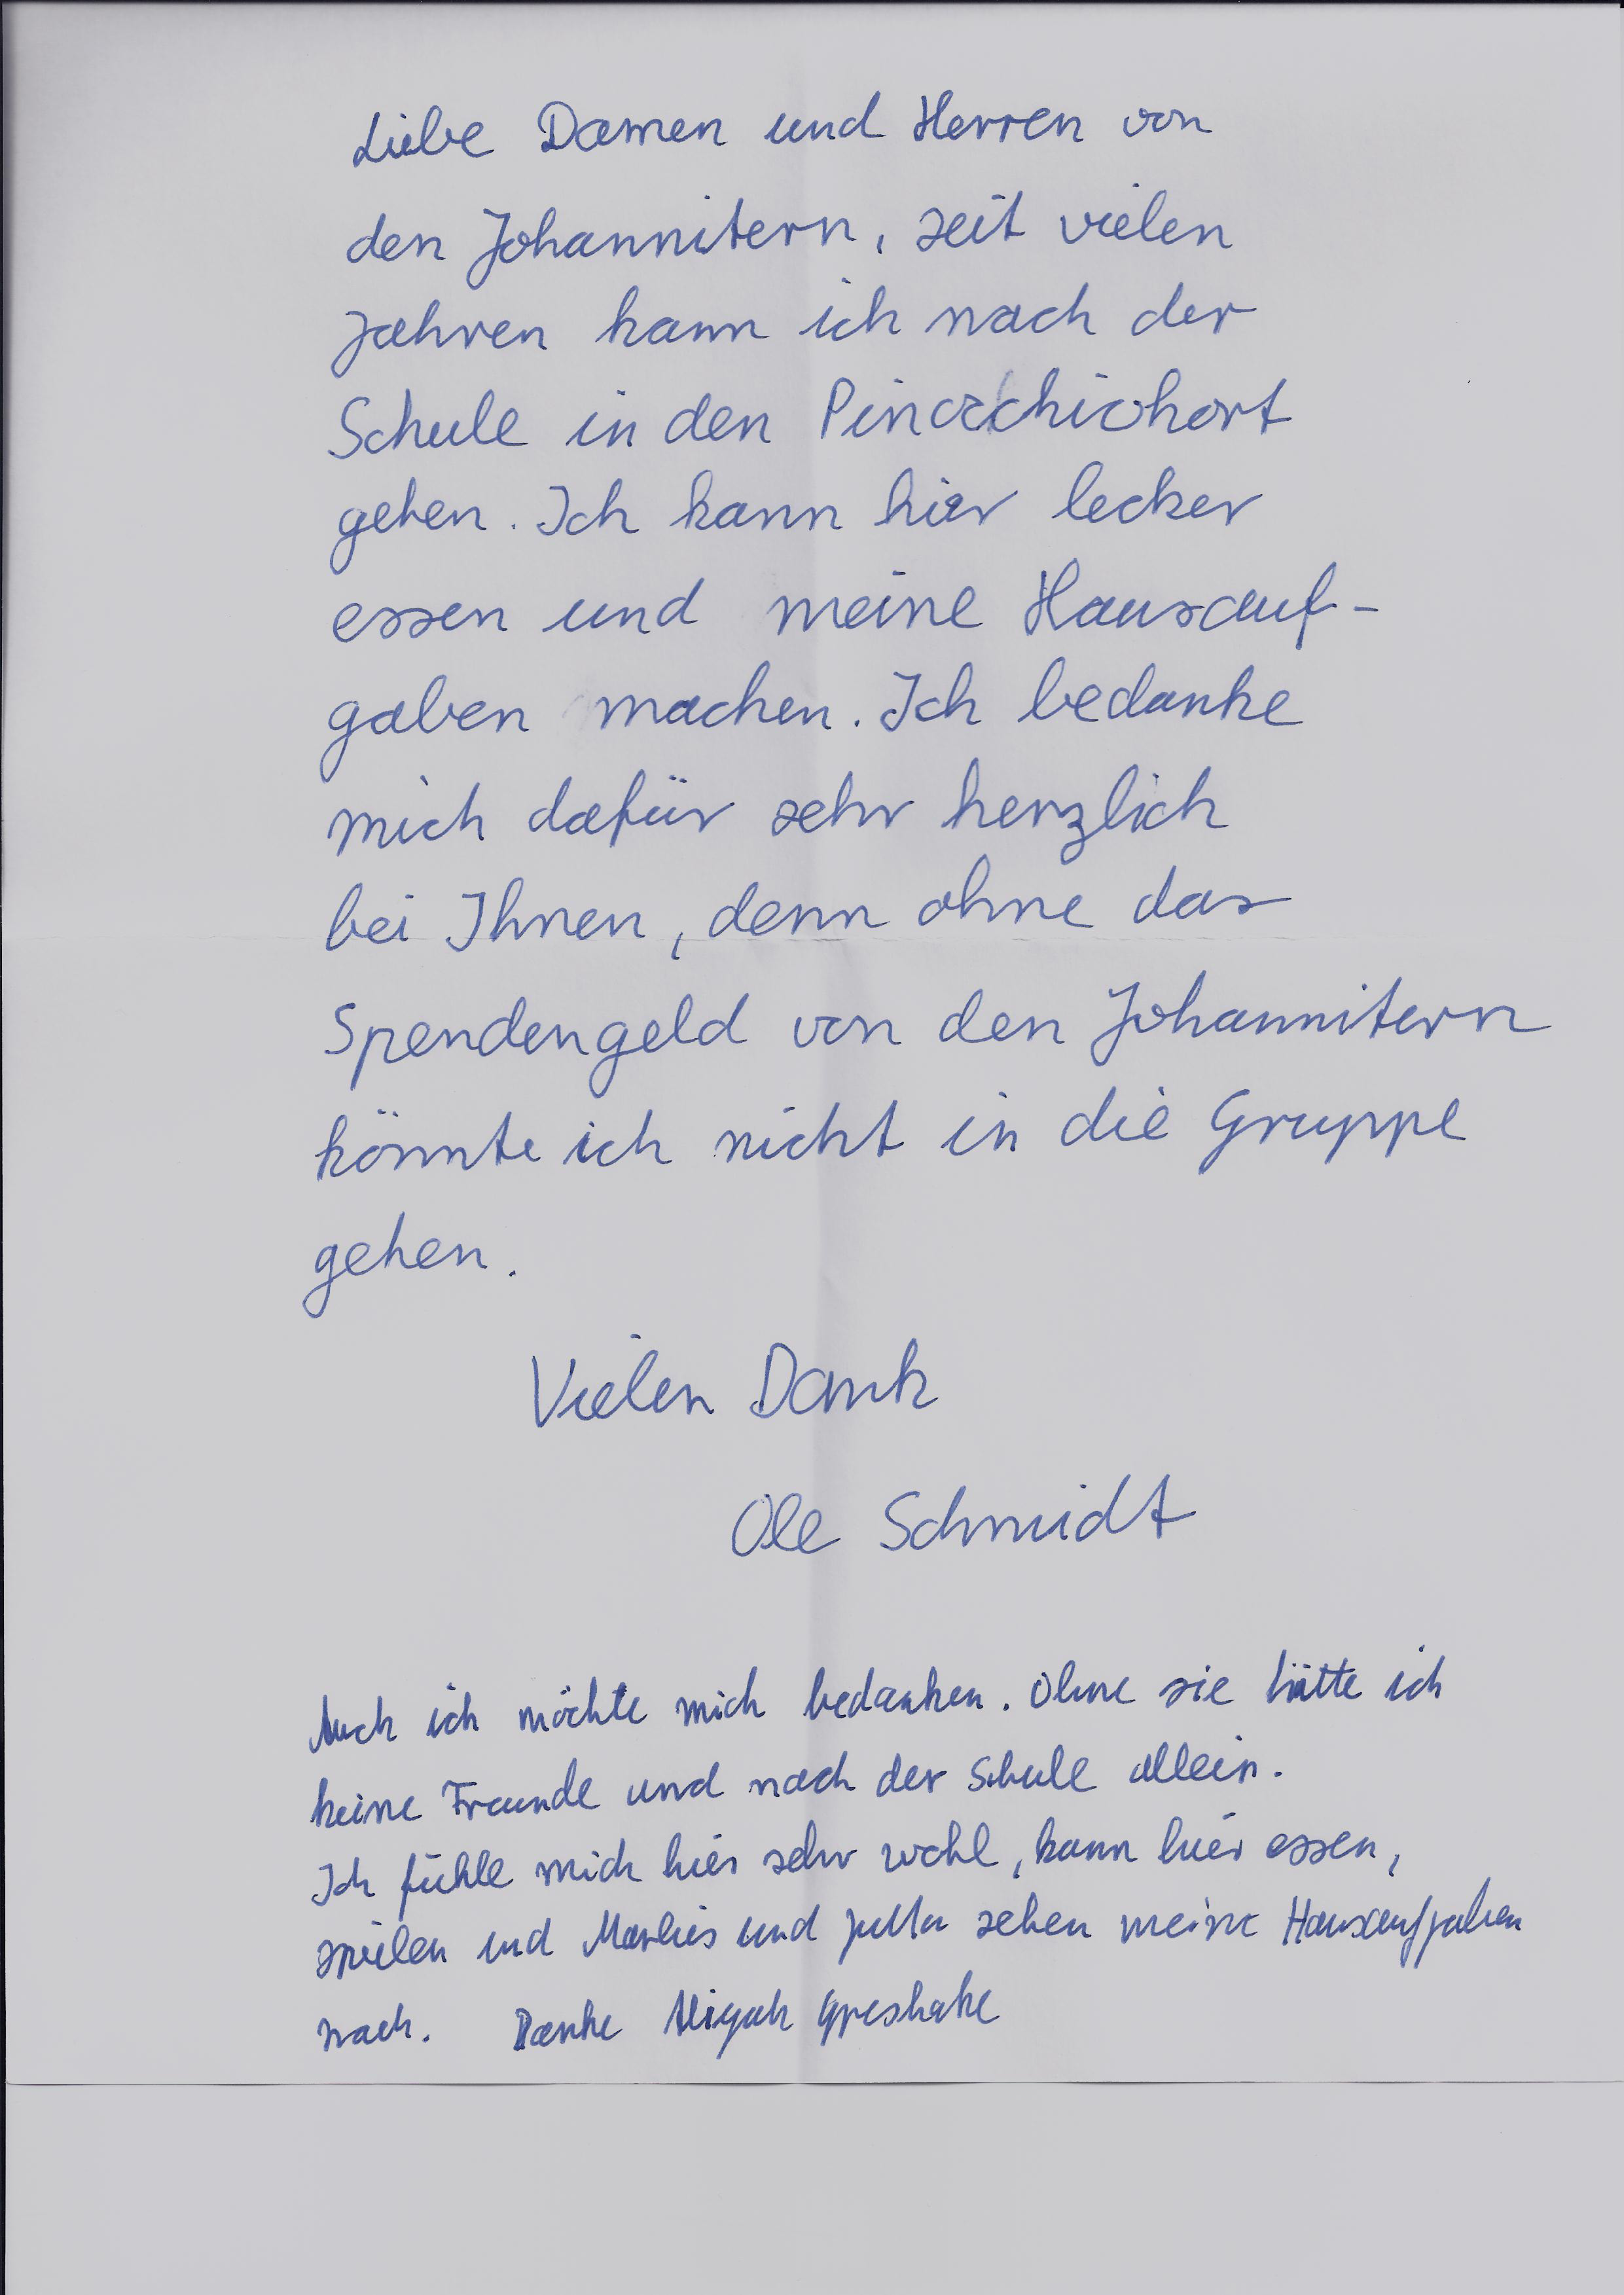 Liebe Damen und Herren von
den Johannitern, seit vielen
Jahren kann ich nach der
Schule in den Pinocchiohort
gehen. Ich kann hier lecker
essen und meine Hausauf-
gaben machen. Ich bedanke
mich dafür sehr herzlich
bei Ihnen, denn ohne das
Spendengeld von den Johannitern
könnte ich nicht in die Gruppe
gehen.
Vielen Dank
Ole Schmidt
Auch ich möchte mich bedanken. Ohne sie hätte ich
keine Freunde und nach der Schule allein.
Ich fühle mich hier sehr wohl, kann hier essen,
spielen und Marlies und Jutta sehen meine Hausaufgaben
nach. Danke Aliyah Greshake